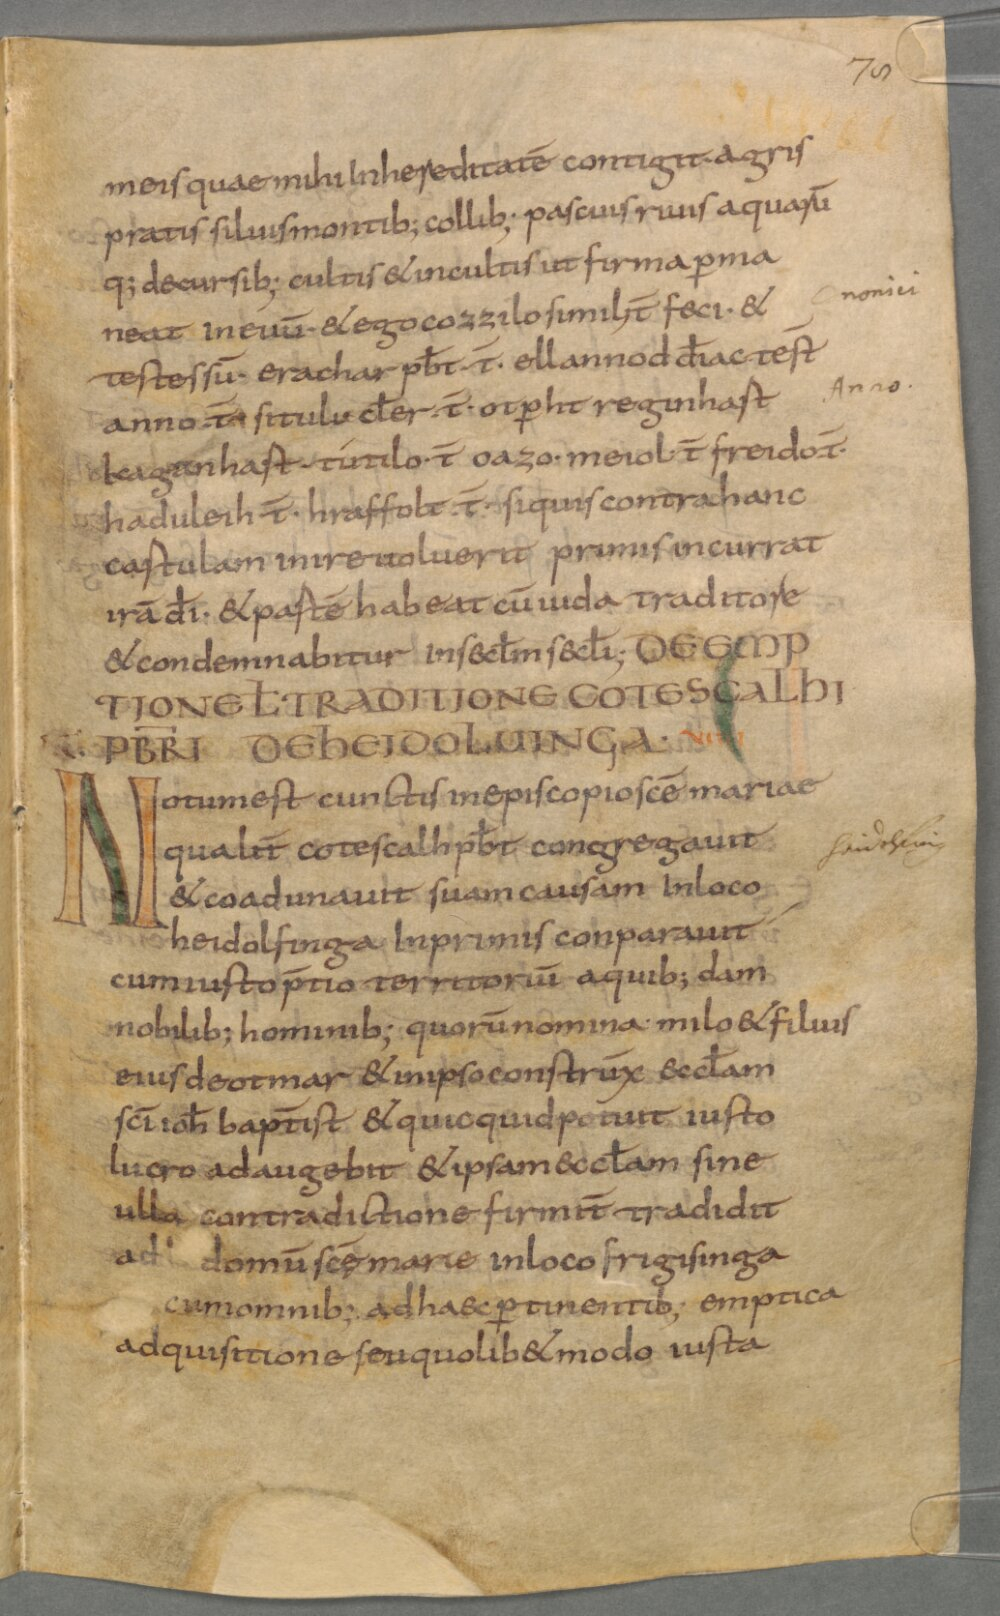 78
meis quae mihi In hereditatē contigit · agris
pratis siluis montib; collib; pascuis riuis aquarū
q; decursib; cultis & incultis ut firma p̄ma
neat in euū · & ego cozzilo similit̄ feci · &
nonici
testes sū · erachar pb̄t · t̄ · ellannod diac test̄
Anno ·
anno · t̄ situlu cl̄er · t̄ · otp̄ht reginhast
keaginhast · tutilo · t̄ oazo · meiol · t̄ freido t̄ ·
haduleih · t̄ · hraffolt · t̄ · siquis contra hanc
castulam inire uoluerit primis incurrat
irā di̅ · & partē habeat cū iuda traditore
& condemnabitur in secl̄m secl̄i; DE EMP
TIONE L̄ TRADITIONE COTESCALHI
PB̄RI DE HEIDOLUINGA ·
Notum est cunctis in episcopio scē mariae
qualit̄ cotescalh pb̄t congregauit
& coadunauit suam causam In loco
heidolfinga In primis conparauit
cum iusto p̄tio territoriū a quib; dam
nobilib; hominib; quorū nomina milo & filius
eius deotmar & in ipso construx̄ eccl̄am
scī ioh̄ baptist̄ & quicquid potuit iusto
lucro adaugebit & ipsam eccl̄am sine
ulla contradictione firmit̄ tradidit
ad domū scē marie in loco frigisinga
cum omnib; ad haec p̄tinentib; emptica
adquisitione seu quolib& modo iusta